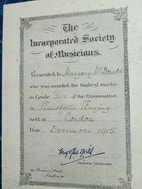 The
Incorporated Society
of Musicians.
Presented to Margery M. Drake
who was awarded the highest marks
in Grade of the Examination
in Pianoforte Playing
held at London
Date December 1915
General Secretary.